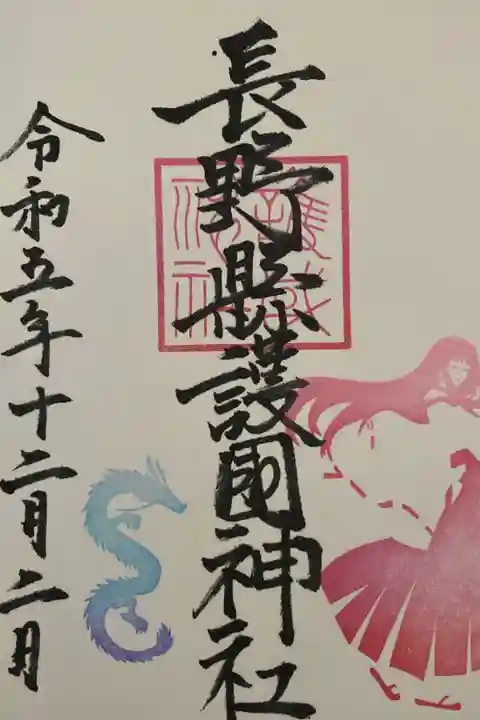 長野縣護國神社
令和五年十二月二日